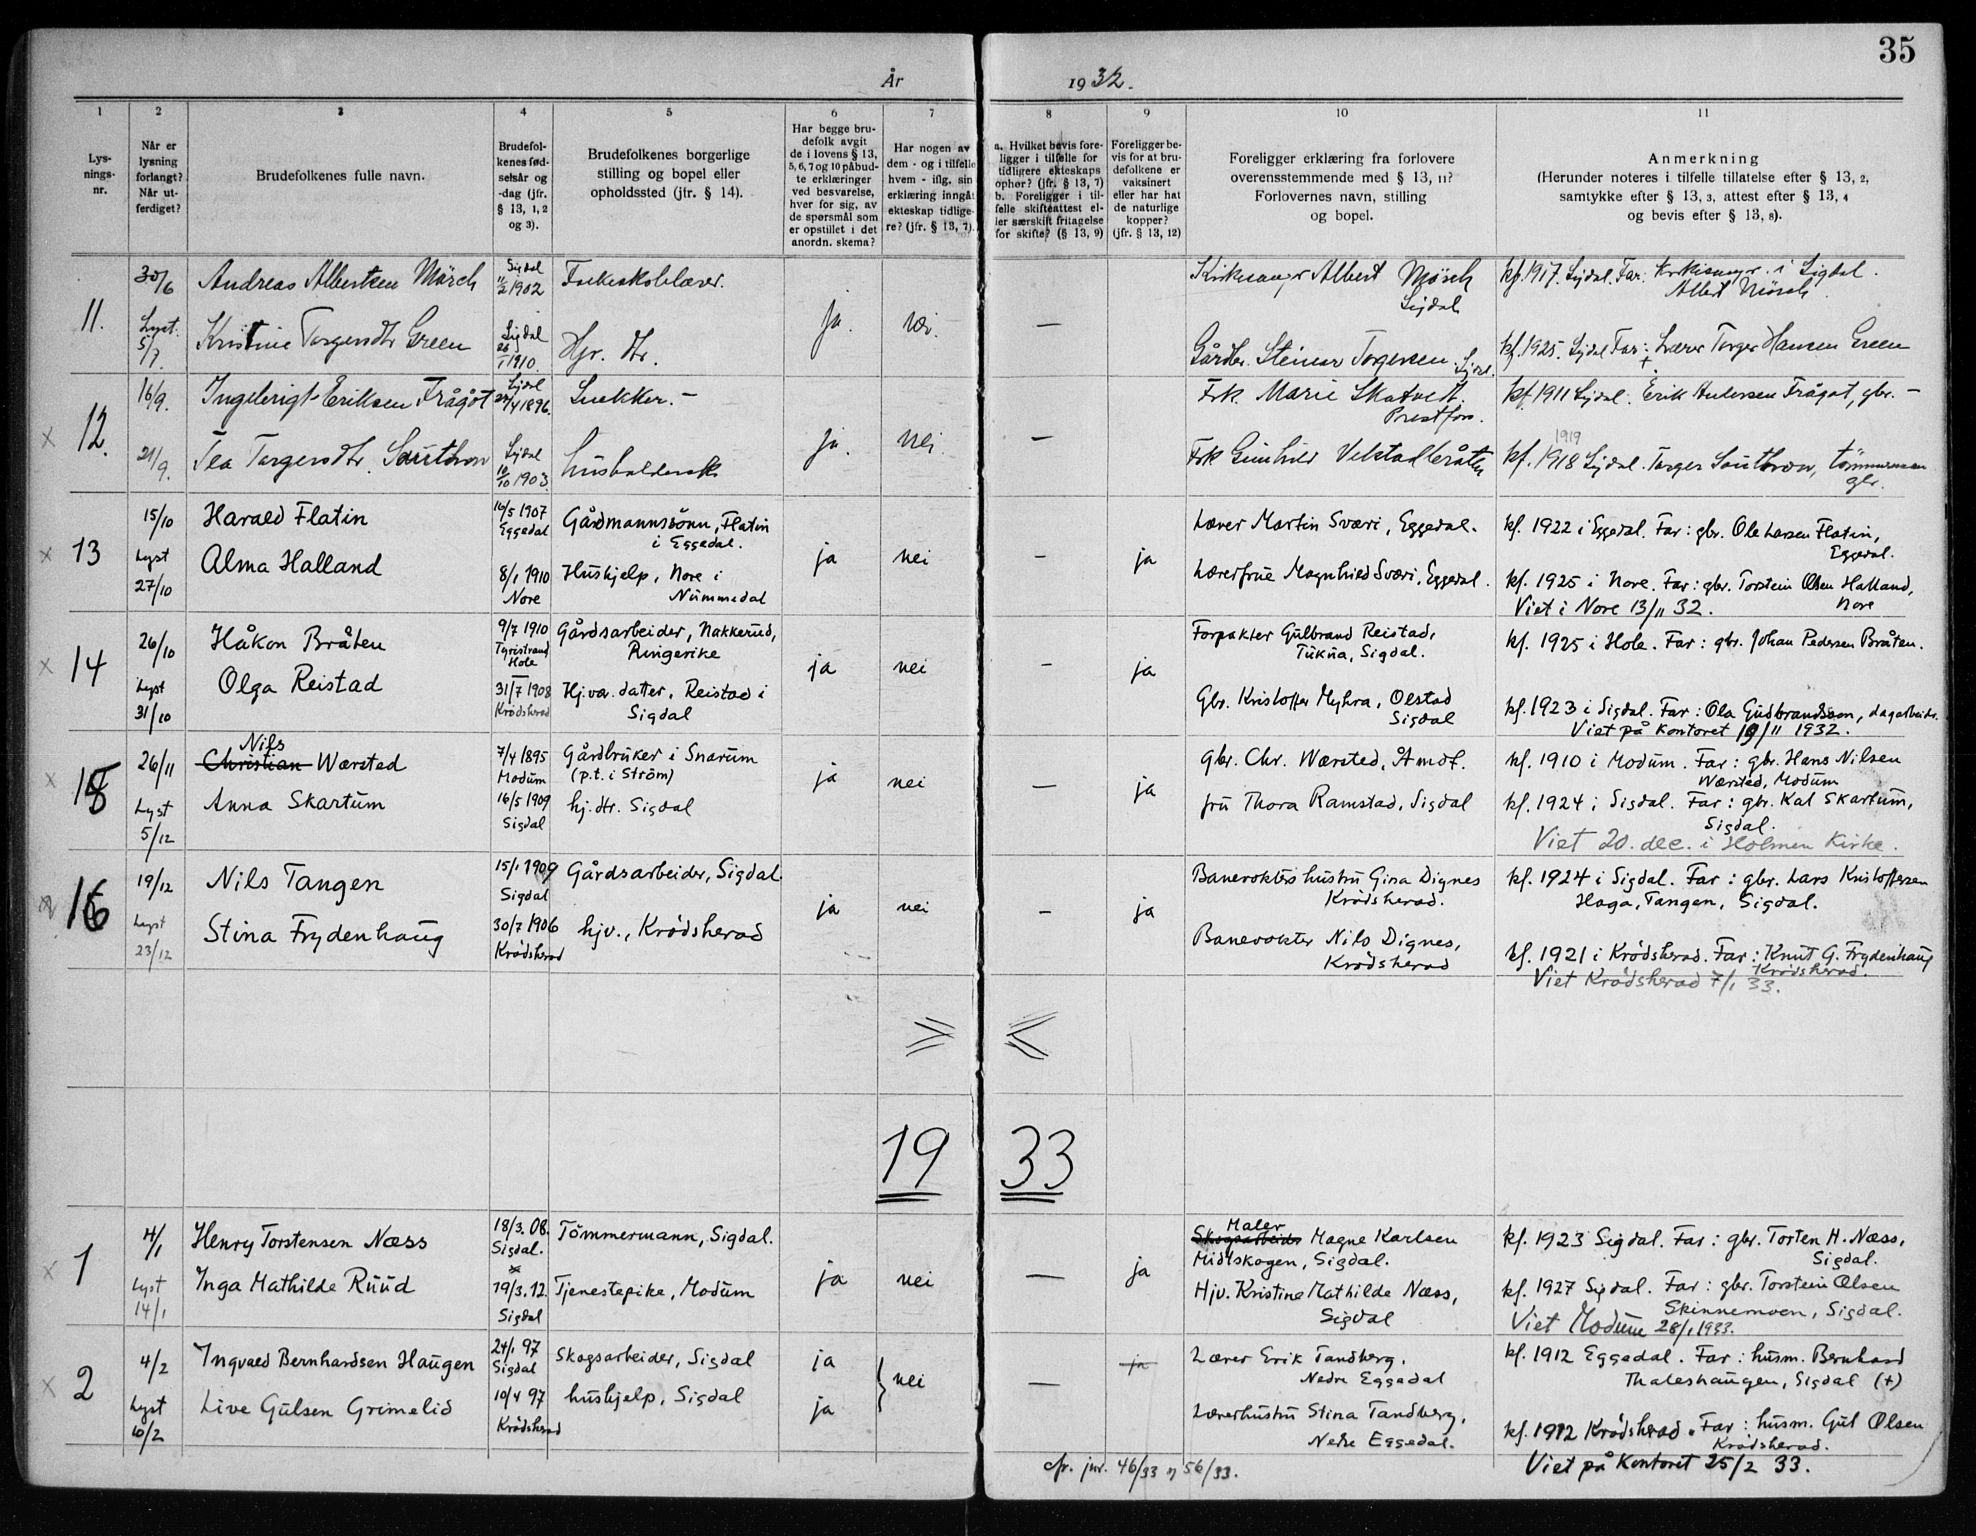 35
År 1932.
1 2 3 4 5 6 7 8 9 10 11
Lys-
nings-
nr.
Når er
lysning
forlangt?
Når ut-
ferdiget?
Brudefolkenes fulle navn.
Brudefol-
kenes fød-
selsår og
-dag (jfr.
§ 13, 1, 2
og 3).
Brudefolkenes borgerlige
stilling og bopel eller
opholdssted (jfr. § 14).
Har begge bru-
defolk avgit
de i lovens § 13,
5, 6, 7 og 10 påbud-
te erklæringer
ved besvarelse,
hver for sig, av
de spørsmål som
er opstillet i det
anordn. skema?
Har nogen av
dem - og i tilfelle
hvem - iflg. sin
erklæring inngåt
ekteskap tidlige-
re? (jfr. § 13, 7).
a. Hvilket bevis fore-
ligger i tilfelle for
tidligere ekteskaps
ophør? (jfr. § 13, 7)
b. Foreligger i til-
felle skifteattest el-
ler særskilt fritagelse
for skifte? (§ 13, 9)
Foreligger be-
vis for at bru-
defolkene er
vaksinert
eller har hat
de naturlige
kopper?
(jfr. § 13, 12)
Foreligger erklæring fra forlovere
overensstemmende med § 13, 11?
Forlovernes navn, stilling
og bopel.
Anmerkning
(Herunder noteres i tilfelle tillatelse efter § 13, 2,
samtykke efter § 13, 3, attest efter § 13, 4
og bevis efter § 13, 8).
11.
30/6
Lyst
5/7.
Andreas Albertsen Mörch
Sigdal
11/2 1902
Folkeskolelærer.
Kirkesanger Albert Mörch
Sigdal
kf. 1917. Sigdal. Far: Kirkesanger i Sigdal.
Albert Mörch
Kristine Torgersdtr Green
Sigdal
26/1 1910.
Hjv. dtr.
ja. nei. —
Gårdbr. Steinar Torgersen Sigdal.
kf. 1925. Sigdal Far: + Lærer Torger Hansen Green
x 12.
16/9.
21/9.
Ingebrigt Eriksen Frågåt
Sigdal
27/4 1896.
Snekker. —
Frk. Marie Skatvedt.
Prestfoss.
kf. 1911 Sigdal. Erik Andersen Frågåt, gbr. —
Tea Torgersdtr.
Sigdal
10/10 1903.
Husholderske
ja. nei. —
Frk Gunhild
1919
kf. 1918 Sigdal. Torger tömmermann
gbr.
x 13
15/10
Lyst
27/10
Harald Flatin
16/5 1907
Eggedal
Gårdmannssönn, Flatin
i Eggedal.
Lærer Martin Sværi, Eggedal.
kf. 1922 i Eggedal. Far: gbr. Ole Larsen Flatin,
Eggedal.
Alma Halland
8/1 1910
Nore
Hushjelp, Nore i
Nummedal
ja nei — ja
Lærerfrue Magnhild Sværi, Eggedal.
kf. 1925 i Nore. Far: gbr. Torstein Olsen Halland,
Nore
Viet i Nore 13/11 32.
x 14
26/10
Lyst
31/10
Håkon Bråten
9/7 1910
Tyristrand
Hole
Gårdsarbeider, Nakkerud,
Ringerike
Forpakter Gulbrand Reistad,
Tukna, Sigdal.
kf. 1925 i Hole. Far: gbr. Johan Pedersen Bråten.
Olga Reistad
31/7 1908
Krödsherad
Hj.vær. datter, Reistad i
Sigdal
ja nei — ja
Gbr. Kristoffer Myhra, Olstad
Sigdal
kf. 1923 i Sigdal. Far: Ola Gudbrandson, dagarbeider.
Viet på kontoret 19/11 1932.
x 15
26/11
Lyst
5/12
Nils
Christian Wærsted
7/4 1895
Modum
Gårdbruker i Snarum
(p.t. i Ström)
gbr. Chr. Wærsted, Åmot.
kf. 1910 i Modum. Far: gbr. Hans Nilsen
Wærsted, Modum
Anna Skartum
16/5 1909
Sigdal
hj. dtr. Sigdal
ja nei — ja
fru Thora Ramstad, Sigdal
kf. 1924 i Sigdal. Far: gbr. Kal Skartum,
Sigdal.
Viet 20. dec. i Holmen Kirke.
16
19/12
Lyst
23/12
Nils Tangen
15/1 1909
Sigdal
Gårdsarbeider, Sigdal
Banevokters hustru Gina Dignes
Krödsherad.
kf. 1924 i Sigdal. Far: gbr. Lars Kristoffersen
Haga, Tangen, Sigdal.
Stina Frydenhaug
30/7 1906
Krödsherad
hjv., Krödsherad
ja nei — ja
Banevokter Nils Dignes,
Krödsherad
kf. 1921 i Krödsherad. Far: Knut G. Frydenhaug
Krödsherad.
Viet Krödsherad 7/1 33.
19 33
x 1
4/1
Lyst
14/1
Henry Torstensen Næss
18/3. 08.
Sigdal.
Tömmermann, Sigdal.
Maler
Skogsarbeider Magne Karlsen
Midtskogen, Sigdal.
kf. 1923 Sigdal. Far: gbr. Torsten H. Næss,
Sigdal.
Inga Mathilde Ruud
19/3. 12.
Sigdal
Tjenestepike, Modum
ja nei — ja
Hjv. Kristine Mathilde Næss,
Sigdal
kf. 1927 Sigdal. Far: gbr. Torstein Olsen
Skinnemoen, Sigdal.
Viet Modum 28/1 1933.
x 2
4/2
Lyst
16/2
Ingvald Bernhardsen Haugen
24/1 97
Sigdal
Skogsarbeider, Sigdal
ja
nei — ja
Lærer Erik Tandberg,
Nedre Eggedal
kf. 1912 Eggedal. Far: husm. Bernhard
Thaleshaugen, Sigdal (+)
Live Gulsen Grimelid
10/4 97
Krödsherad
hushjelp, Sigdal
ja
Lærerhustru Stina Tandberg,
Nedre Eggedal.
kf. 1912 Krödsherad. Far: husm. Gul Olsen
Krödsherad.
cfr. jnr. 46/33 og 56/33.
Viet på kontoret 25/2 33.